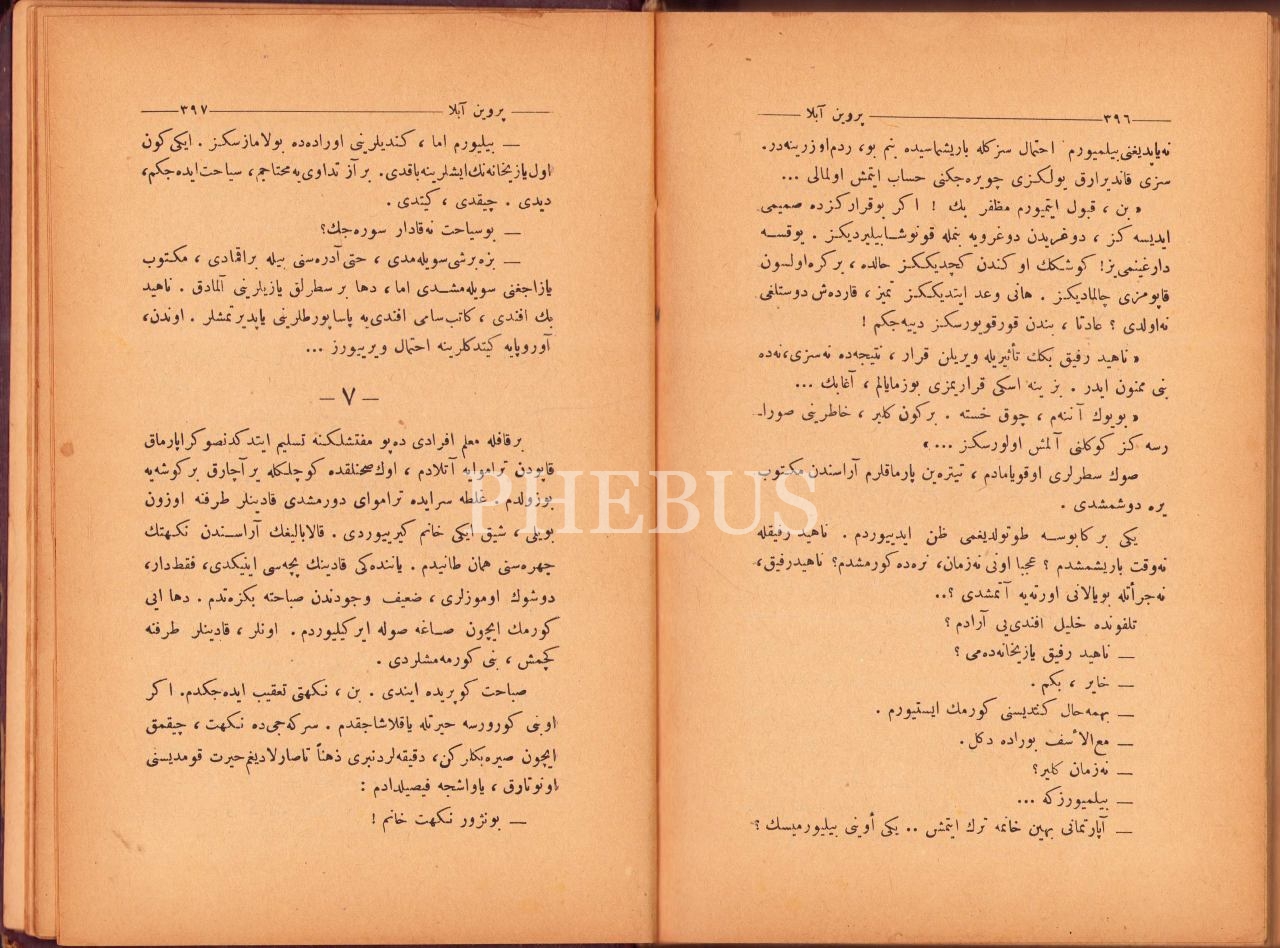 ٣٩٦ پروین آبلا
نه‌یاپدیغنی بیلمیورم احتمال سزكله باریشماسیده بنم بو، ردم اوزرینه‌در.
سزی قاندیرارق یولكزی چویره‌جكنی حساب ایتمش اولمالی ...
« بن ، قبول ایتمیورم مظفر بك ! اكر بوقراركزده صمیمی
ایدیسه كز ، دوغریدن دوغرویه بنمله قونوشابیلیردیكز . یوقسه
دارغینمی‌یز! كوشكك اوكندن كچدیككز حالده ، بركره‌اولسون
قاپومزی چالمادیكز . هانی وعد ایتدیككز تمیز ، قارده‌ش دوستلغی
نه‌اولدی ؟ عادتا ، بندن قورقویورسكز دییه‌جكم !
« ناهید رفیق بكك تأثیریله ویریلن قرار ، نتیجه‌ده نه‌سزی،نه‌ده
بنی ممنون ایدر . بز ینه اسكی قراریمزی بوزمایالم ، آغابك ...
« بویوك آننه‌م ، چوق خسته . بركون كلیر ، خاطرینی صورا-
رسه كز كوكلنی آلمش اولورسكز ... »
صوك سطرلری اوقویامادم ، تیتره‌ین پارماقلرم آراسندن مكتوب
یره دوشمشدی .
یكی بر كابوسه طوتولدیغمی ظن ایدییوردم . ناهید رفیقله
نه‌وقت باریشمشدم ؟ عجبا اونی نه‌زمان، نره‌ده كورمشدم؟ ناهیدرفیق،
نه‌جرأتله بویالانی اورته‌یه آتمشدی ؟..
تلفونده خلیل افندی‌یی آرادم ؟
— ناهید رفیق یازیخانه‌ده‌می ؟
— خایر ، بكم .
— بهمه‌حال كندیسنی كورمك ایستیورم .
— مع‌الأسف بوراده دكل.
— نه‌زمان كلیر؟
— بیلمیورزكه ...
— آپارتمانی بهین خانمه ترك ایتمش .. یكی أوینی بیلیورمیسك ؟
پروین آبلا ٣٩٧
— بیلیورم اما ، كندیلرینی اوراده‌ده بولامازسكز . ایكی كون
اول یازیخانه‌نك ایشلرینه باقدی. بر آز تداوی‌یه محتاجم ، سیاحت ایده‌جكم،
دیدی . چیقدی ، كیتدی .
— بوسیاحت نه‌قادار سوره‌جك؟
— بزه برشی سویله‌مدی ، حتی آدره‌سنی بیله براقمادی ، مكتوب
یازاجغنی سویله‌مشدی اما ، دها بر سطرلق یازیلرینی آلمادق . ناهید
بك افندی ، كاتب سامی افندی‌یه پاساپورطلرینی یاپدیرتمشلر . اوندن،
آوروپایه كیتدكلرینه احتمال ویرییورز ...
— ٧ —
برقافله معلم افرادی ده‌پو مفتشلكنه تسلیم ایتدكدنصوكراپارماق
قاپودن تراموایه آتلادم ، اوك صحنلقده كوچلكله یر آچارق بركوشه‌یه
بوزولدم . غلطه سرایده تراموای دورمشدی قادینلر طرفنه اوزون
بویلی ، شیق ایكی خانم كیرییوردی . قالابالیغك آراسندن نكهتك
چهره‌سنی همان طانیدم . یاننده‌كی قادینك پچه‌سی اینیكدی، فقط دار،
دوشوك اوموزلری ، ضعیف وجودندن صباحته بكزه‌تدم . دها ایی
كورمك ایچون صاغه صوله ایركیلیوردم . اونلر ، قادینلر طرفنه
كچمش ، بنی كورمه‌مشلردی .
صباحت كوپریده ایندی . بن ، نكهتی تعقیب ایده‌جكدم. اكر
اوبنی كورورسه حیرتله یاقلاشاجقدم . سركه‌جی‌ده نكهت ، چیقمق
ایچون صیره‌بكلركن، دقیقه‌لردنبری ذهناً تاصارلادیغم‌حیرت قومدیسنی
اونوتارق ، یاواشجه فیصیلدادم :
— بونژور نكهت خانم !
PHEBUS